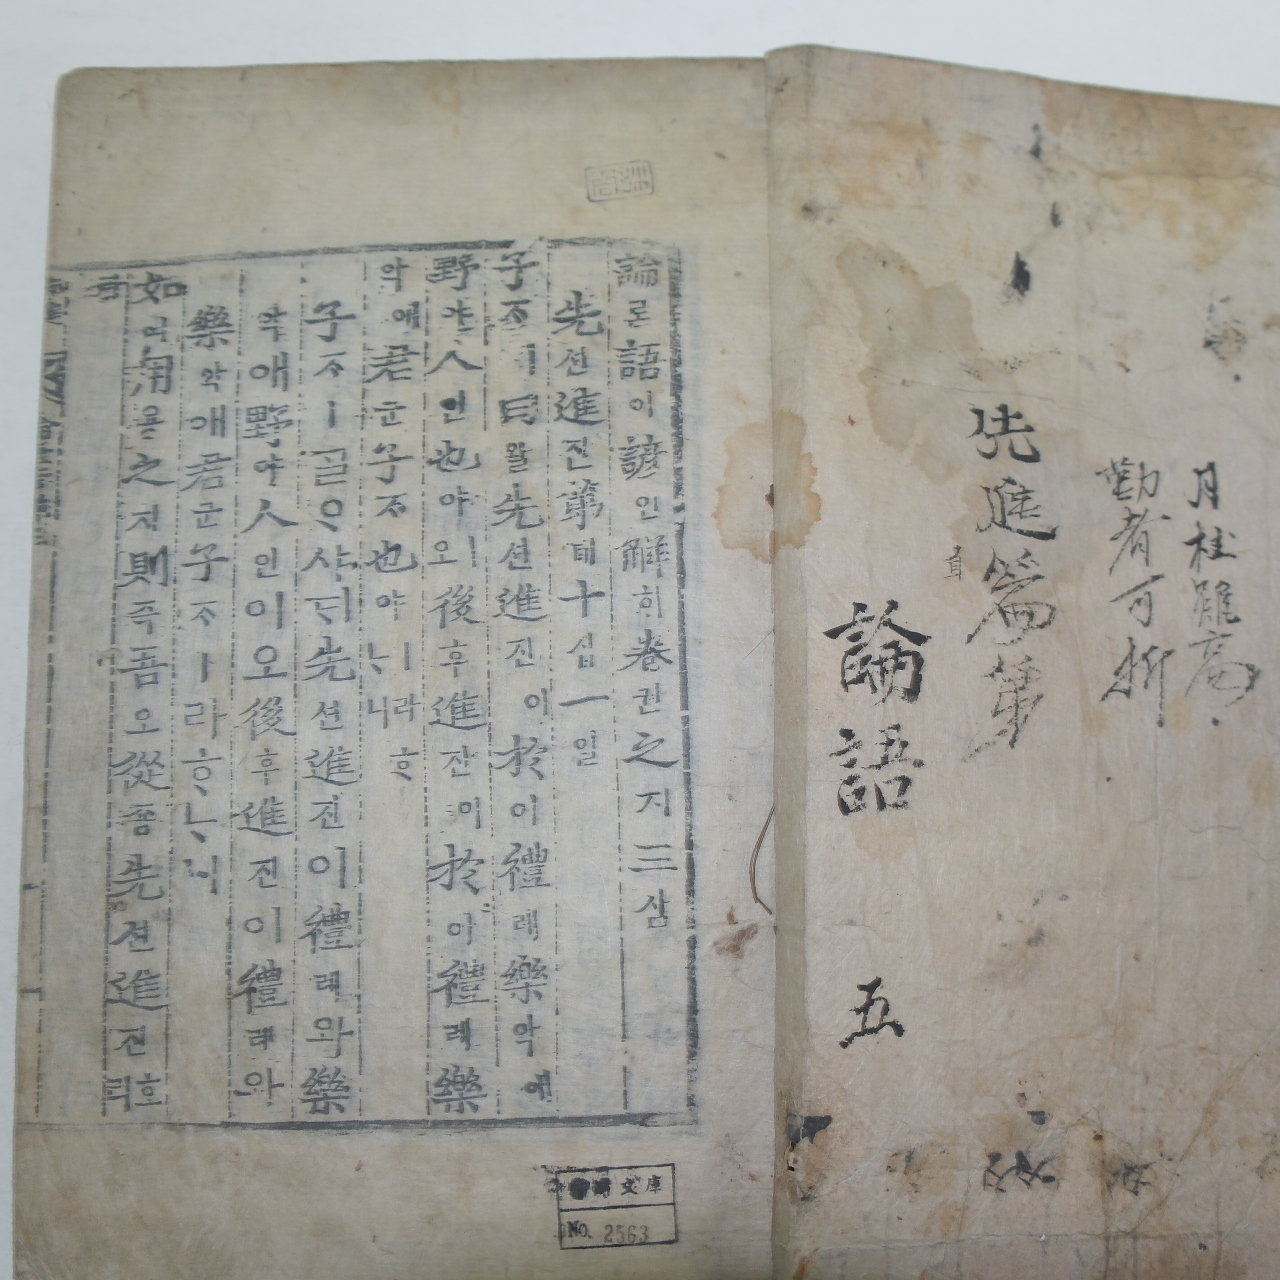 月桂雖高
勤者可折
先進篇第
論語
五
論론語어諺언解ᄒᆡ卷권之지三삼
先션進진第뎨十십一일
子ᄌᆞㅣ曰왈先션進진이於어禮례樂악애
野야人인也야ㅣ오後후進진이於어禮례樂
악애君군子ᄌᆞ也야ㅣ라ᄒᆞᄂᆞ니
子ᄌᆞㅣᄀᆞᆯᄋᆞ샤ᄃᆡ先션進진이禮례와樂
악애野야人인이오後후進진이禮례와
樂악애君군子ᄌᆞㅣ라ᄒᆞᄂᆞ니
如여用용之지則즉吾오從죵先션進진호리
文庫
No. 2563